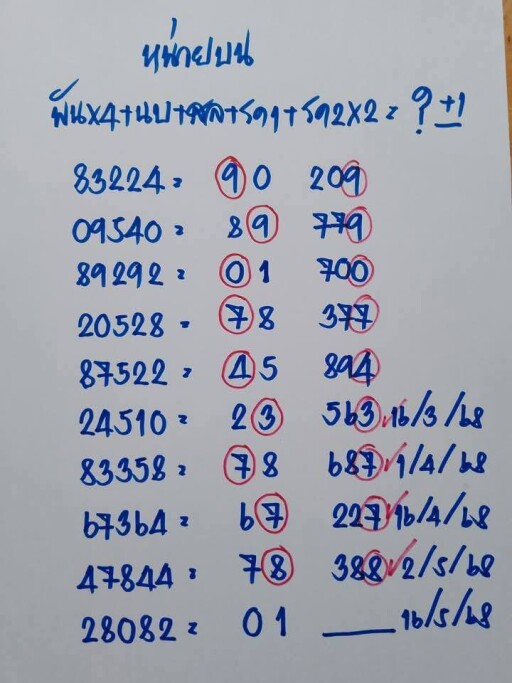 หน่วยบน
พันx4+นบ+ลล+รฐ1+รฐ2x2= ? +1
83224= 90 209
09540= 89 779
89292= 01 700
20528= 78 377
87522= 45 894
24510= 23 563 16/3/68
83358= 78 687 1/4/68
67364= 67 227 16/4/68
47844= 78 388 2/5/68
28082= 01 ___ 16/5/68